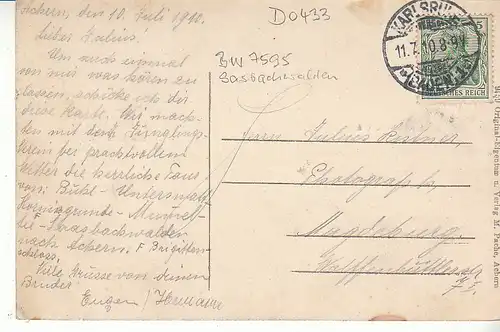 Achern, den 10. Juli 1910.
Lieber Julius!
Um auch einmal
von mir was hören zu
lassen, schicke ich dir
diese Karte. Wir mach-
ten mit dem Jünglings-
verein bei prachtvollem
Wetter die herrliche Tour
von: Bühl - Untersmatt
Hornisgrunde - Mummel-
See - Saasbachwalden
nach Achern. F Brigitten-
schloss.
Viele Grüsse von deinem
Bruder
Eugen / Hermann
D0433
BW 7595
Sasbachwalden
KARLSRUHE
11.7.10.8-9V.
DEUTSCHES REICH
Herrn Julius
Photograph,
Magdeburg.
Wolfenbüttlerstr
Original-Eigentum u. Verlag M. Peche, Achern